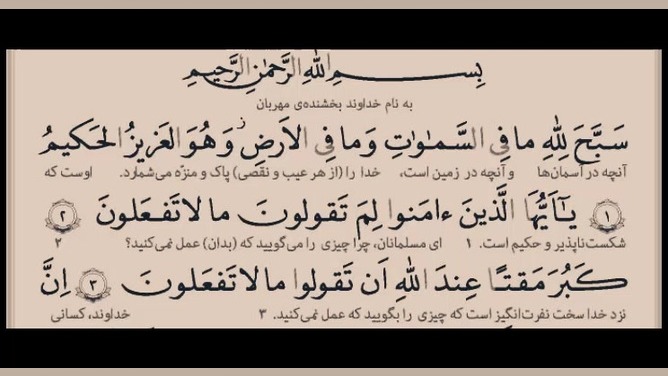 بِسـمِ اللهِ الرَّحمٰنِ الرَّحیمِ
به نام خداوند بخشنده‌ی مهربان
سَبَّحَ لِلّٰهِ ما فِی السَّمٰوٰتِ وَ ما فِی الاَرضِ ز وَ هُوَ العَزیزُ الحَکیمُ
آنچه در آسمان‌ها و آنچه در زمین است، خدا را (از هر عیب و نقصی) پاک و منزّه می‌شمارد. اوست که
﴿۱﴾ یٰۤاَیُّهَا الَّذینَ ءامَنوا لِمَ تَقولونَ ما لا تَفعَلونَ ﴿۲﴾
شکست‌ناپذیر و حکیم است. ۱ ای مسلمانان، چرا چیزی را می‌گویید که (بدان) عمل نمی‌کنید؟ ۲
کَبُرَ مَقتًا عِندَ اللهِ اَن تَقولوا ما لا تَفعَلونَ ﴿۳﴾ اِنَّ
نزد خدا سخت نفرت‌انگیز است که چیزی را بگویید که عمل نمی‌کنید. ۳ خداوند، کسانی